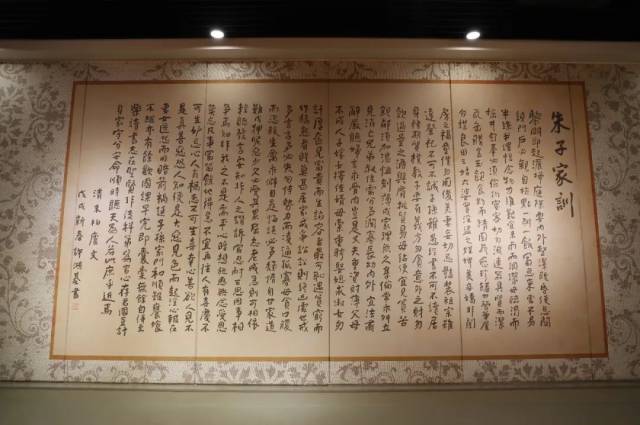 朱子家訓
黎明即起灑掃庭除要內外整潔既昏便息關
鎖門戶必親自檢點一粥一飯當思來處不易
半絲半縷恆念物力維艱宜未雨而綢繆毋臨渴而
掘井自奉必須儉約宴客切勿流連器具質而潔
瓦缶勝金玉飲食約而精園蔬愈珍饈勿營華屋
勿謀良田三姑六婆實淫盜之媒婢美妾嬌非閨
房之福童僕勿用俊美妻妾切忌豔裝祖宗雖
遠祭祀不可不誠子孫雖愚經書不可不讀居
身務期質樸教子要有義方勿貪意外之財勿
飲過量之酒與肩挑貿易毋佔便宜見貧苦
親鄰須加溫恤刻薄成家理無久享倫常乖舛立
見消亡兄弟叔侄需分多潤寡長幼內外宜法肅
辭嚴聽婦言乖骨肉豈是丈夫重資財薄父母
不成人子嫁女擇佳婿毋索重聘娶媳求淑女勿
計厚奩見富貴而生諂容者最可恥遇貧窮而
作驕態者賤莫甚居家戒爭訟訟則終凶處世戒
多言言多必失勿恃勢力而凌逼孤寡毋貪口腹
而恣殺生禽乖僻自是悔誤必多頹惰自甘家道
難成狎暱惡少久必受其累屈志老成急則可相依
輕聽發言安知非人之譖訴當忍耐三思因事相
爭焉知非我之不是需平心暗想施惠無念受恩
莫忘凡事當留餘地得意不宜再往人有喜慶不
可生妒忌心人有禍患不可生喜幸心善欲人見不
是真善惡恐人知便是大惡見色而起淫心報在
妻女匿怨而用暗箭禍延子孫家門和順雖饔飧
不繼亦有餘歡國課早完即囊橐無餘自得至
樂讀書志在聖賢非徒科第為官心存君國豈計
身家守分安命順時聽天為人若此庶乎近焉
清朱柏廬文
戊戌新春